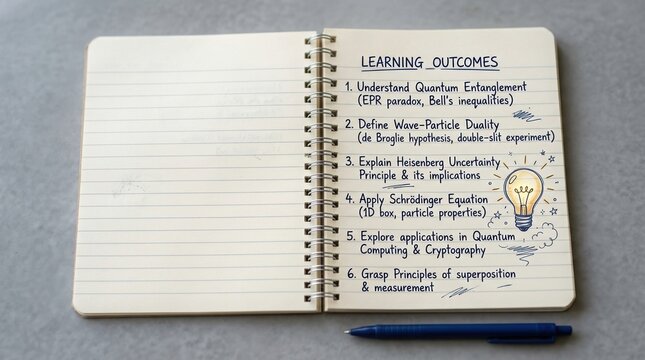 LEARNING OUTCOMES
1. Understand Quantum Entanglement
(EPR paradox, Bell's inequalities)
2. Define Wave-Particle Duality
(de Broglie hypothesis, double-slit experiment)
3. Explain Heisenberg Uncertainty
Principle & its implications
4. Apply Schrödinger Equation
(1D box, particle properties)
5. Explore applications in Quantum
Computing & Cryptography
6. Grasp Principles of superposition
& measurement